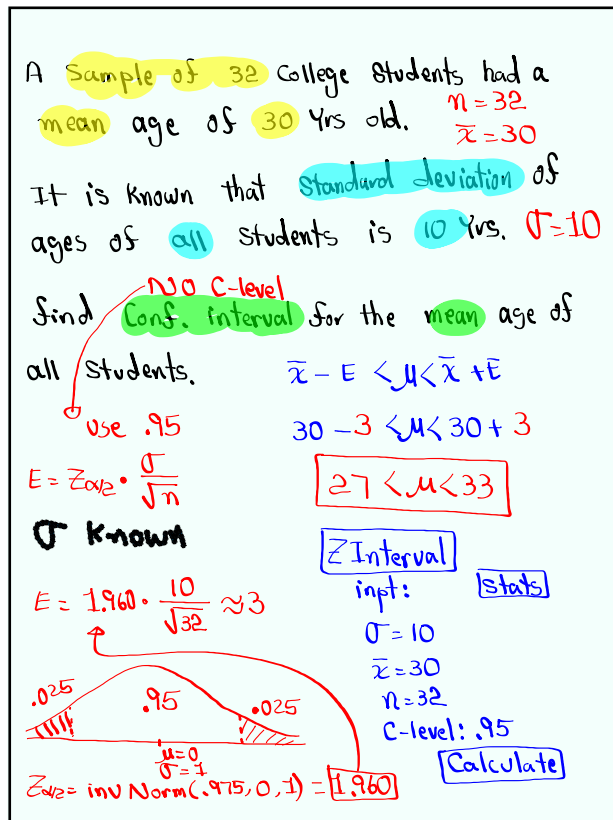 A Sample of 32 College Students had a
mean age of 30 Yrs old. n = 32
x̄ = 30
It is Known that Standard deviation of
ages of all Students is 10 Yrs. σ = 10
NO C-level
find Conf. interval for the mean age of
all Students.
use .95
E = Zα/2 · σ/√n
σ Known
E = 1.960 · 10/√32 ≈ 3
.025 .95 .025
μ=0
σ=1
Zα/2 = invNorm(.975, 0, 1) = 1.960
x̄ - E < μ < x̄ + E
30 - 3 < μ < 30 + 3
27 < μ < 33
Z Interval
inpt: Stats
σ = 10
x̄ = 30
n = 32
C-level: .95
Calculate